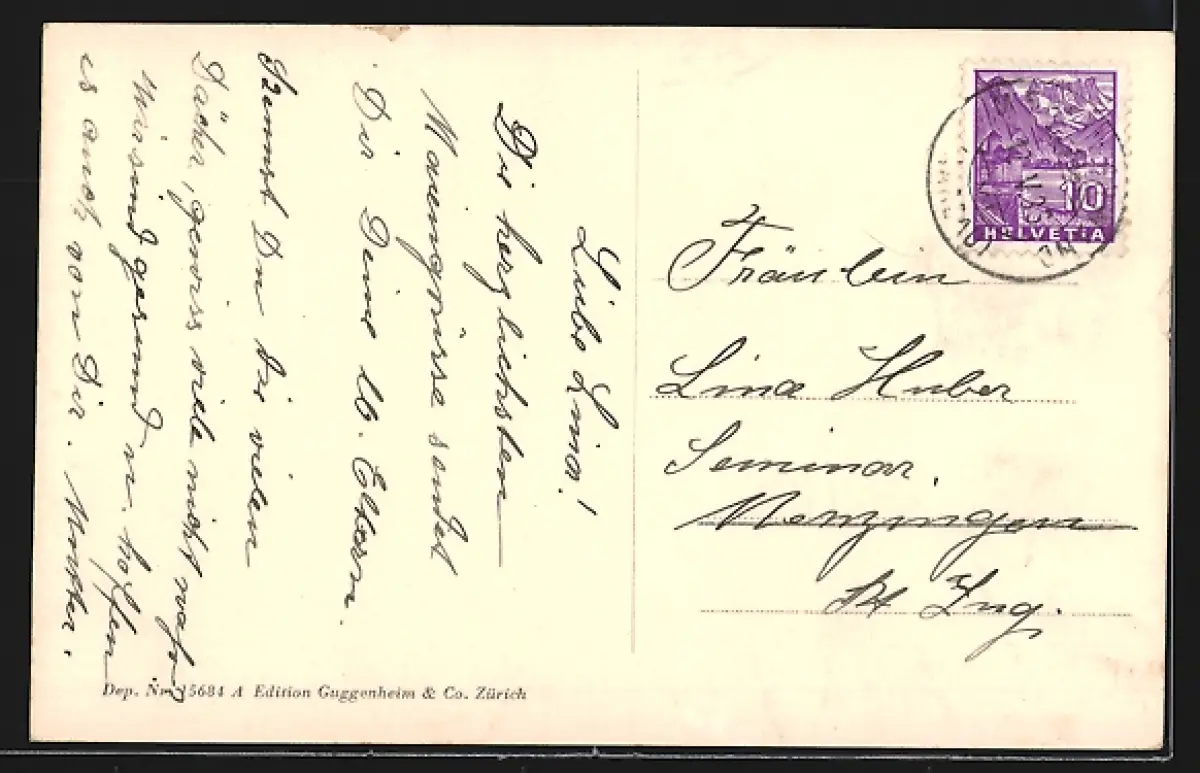 Liebe Lina!
Die herzlichsten
Maiengrüsse sendet
Dir Deine lb. Eltern.
Kennst Du die vielen
Dächer, gewiss viele nicht wahr?
Wir sind gesund u. hoffen
es auch von Dir. Mutter.
Fräulein
Lina Huber
Seminar.
Menzingen
Kt Zug.
10
HELVETIA
Dep. Nr. 15684 A Edition Guggenheim & Co. Zürich